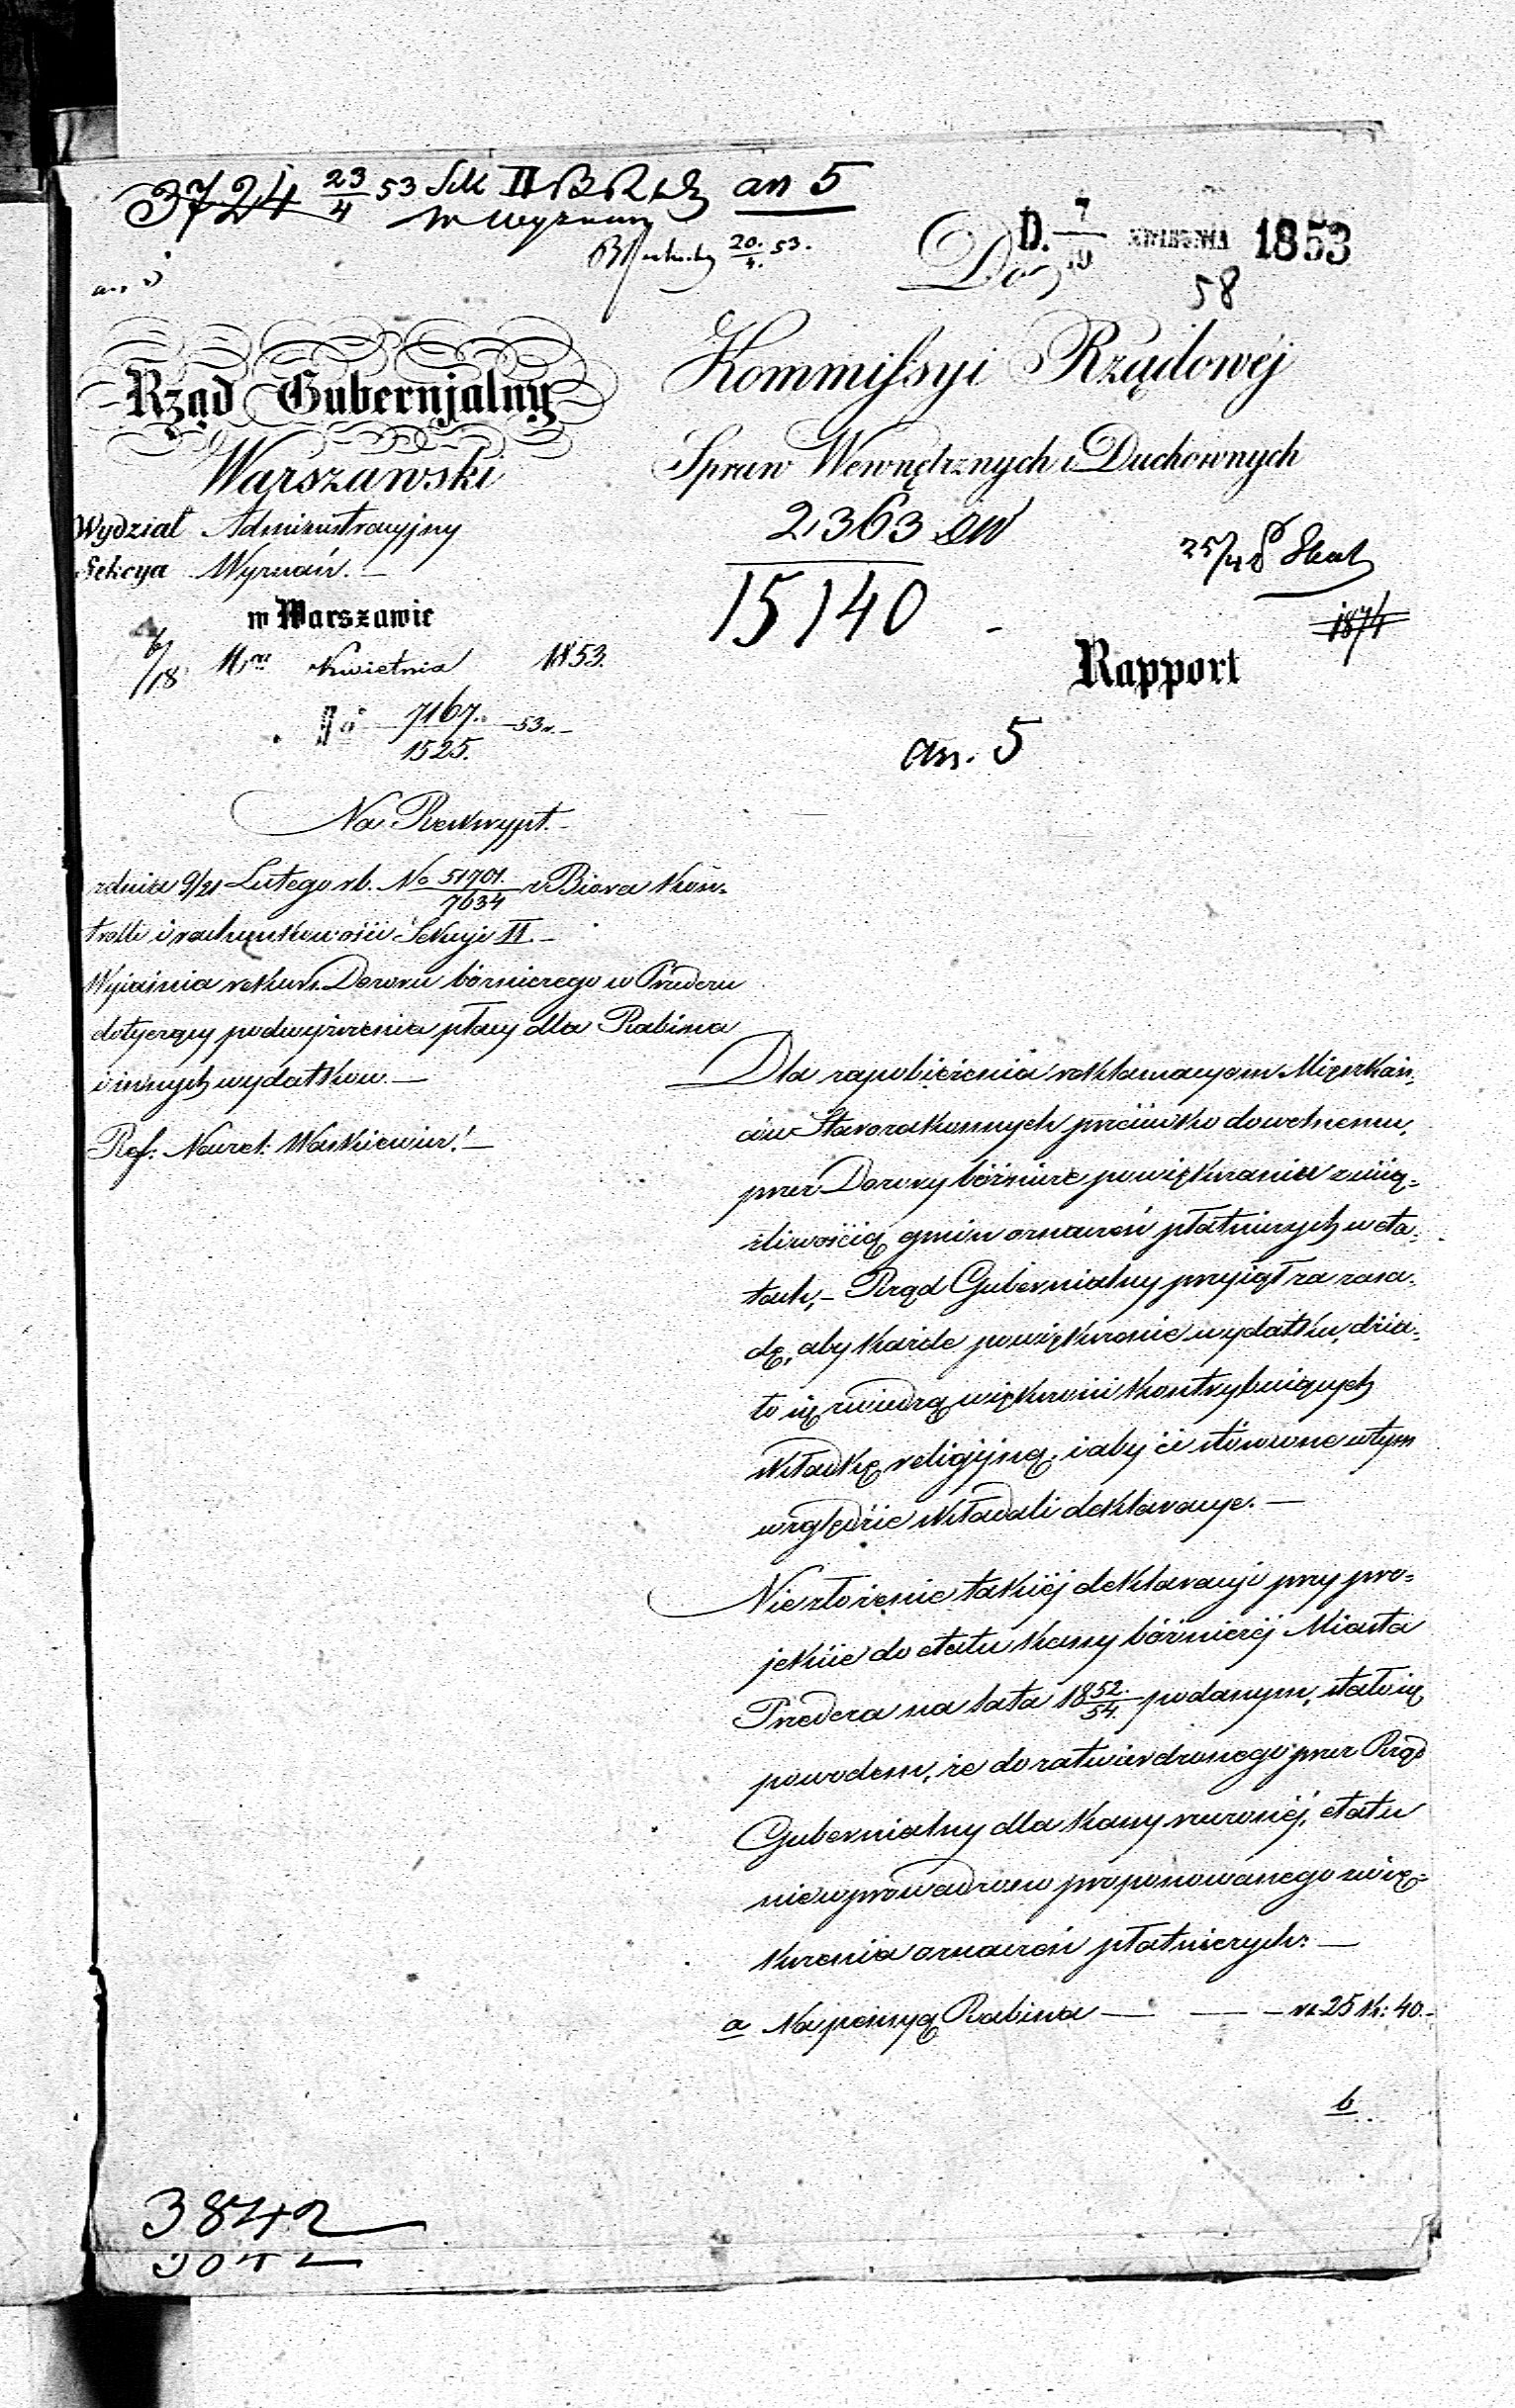 3724 23/4 53 II an 5
w Wyznan
20/4. 53.
D. 7/19 KWIETNIA 1853
Do
58
Rząd Gubernjalny
Warszawski
Wydział Administracyjny
Sekcya Wyznań. —
w Warszawie
6/18 Kwietnia 1853.
No 7167./1525. 53 r. —
Kommissyi Rządowéj
Spraw Wewnętrznych i Duchownych
2363
15140
25/4
1874
Rapport
an. 5
Na Reskrypt. —
z dnia 9/21 Lutego r.b. No 51701./7634 z Biora Kon-
trolli i rachunkowości Sekcyi II. —
Wyjaśnia rekurs Dozoru bóżniczego w Przederu
dotyczący podwyższenia płacy dla Rabina
i innych wydatków. —
Ref: Naczel: Waskiewicz! —
Dla zapobieżenia reklamacyom Mieszkań-
ców Starozakonnych przeciwko dowolnemu,
przez Dozory bóżnicze powiększaniu z uciąż-
liwością gmin oznaczeń płatniczych w eta-
tach, – Rząd Gubernialny przyjął za zasa-
dę, aby każde powiększenie wydatku, dzia-
ło się z wiedzą większości kontrybuujących
składkę religijną, i aby ci stosowne w tym
względzie składali deklaracye. —
Niezłożenie takiéj deklaracyi przy pro-
jekcie do etatu kassy bóżniczéj Miasta
Przedecza na lata 1852./54. podanym, stało się
powodem, że do zatwierdzonego przez Rząd
Gubernialny dla kassy rzeczonéj, etatu
niewprowadzono proponowanego zwięk-
szenia oznaczeń płatniczych: —
a Na pensyą Rabina — — — rs 25 k: 40. –
b
3842